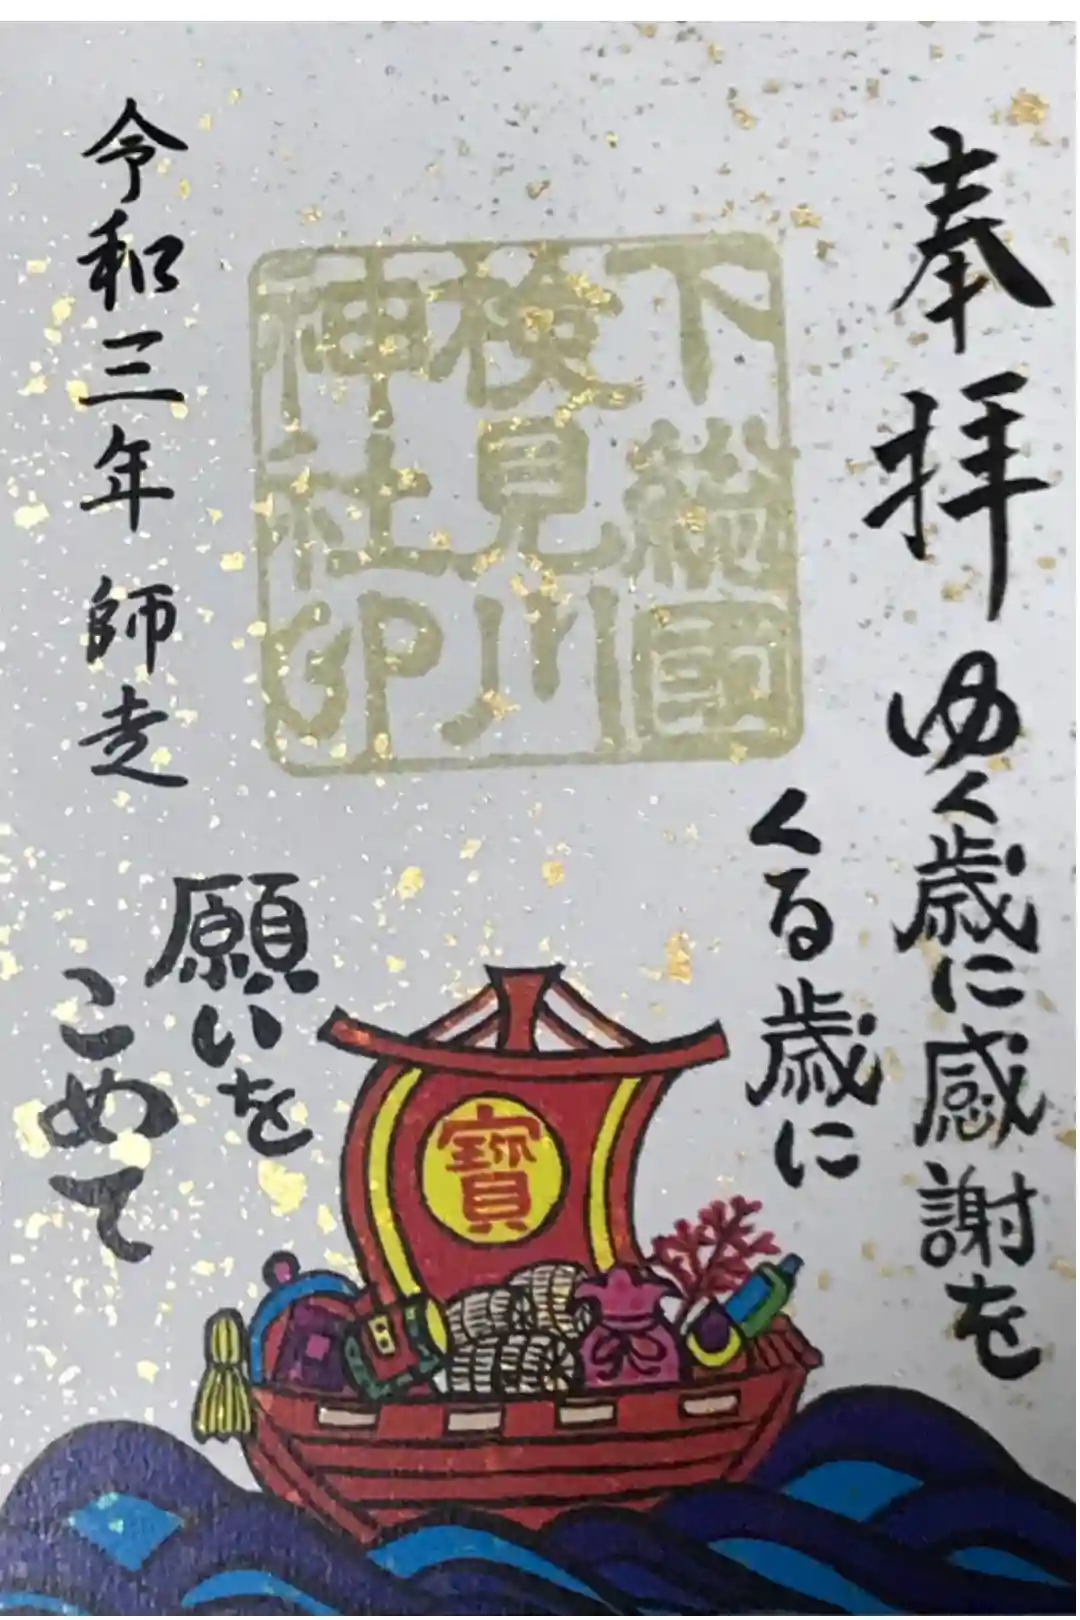 奉拝
ゆく歳に感謝を
くる歳に
願いを
こめて
下総國
検見川
神社印
寶
令和三年 師走